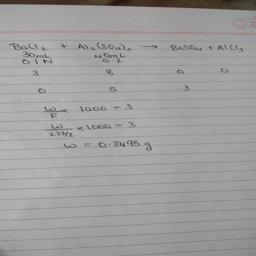 BaCl₂ + Al₂(SO₄)₃ → BaSO₄ + AlCl₃
30mL 40mL
0.1 N 0.2
3 8 0 0
0 5 3
W/E × 1000 = 3
W/233/2 × 1000 = 3
W = 0.3495 g